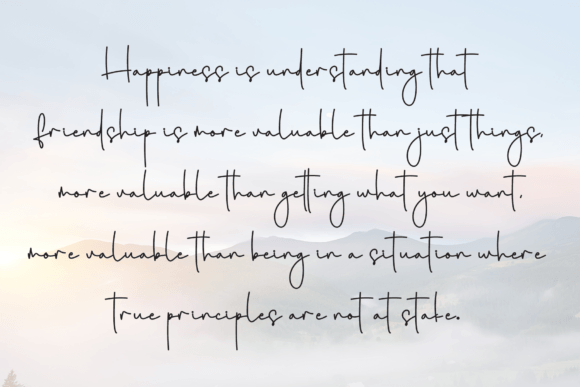 Happiness is understanding that
friendship is more valuable than just things,
more valuable than getting what you want,
more valuable than being in a situation where
true principles are not at stake.